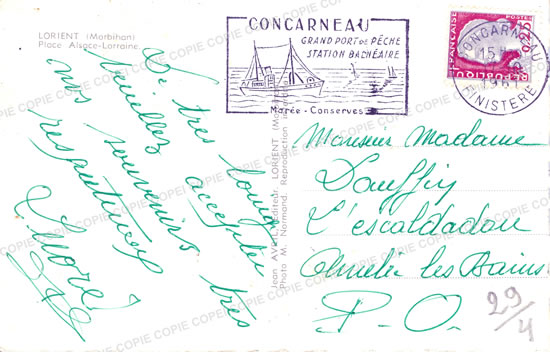 LORIENT (Morbihan)
Place Alsace-Lorraine.
De très loin
Veuillez accepter
nos souvenirs très
respectueux
CONCARNEAU
GRAND PORT DE PÊCHE
STATION BALNÉAIRE
Marée - Conserves
CONCARNEAU
15 H
1961
FINISTERE
POSTES
0,25
REPUBLIQUE FRANÇAISE
Jean éditeur LORIENT (Morbihan)
Photo M. Normand Reproduction
Monsieur Madame
Dauffiy
L'escaldadou
Amélie les Bains
P-O.
29/4
COPIE COPIE COPIE COPIE COPIE COPIE